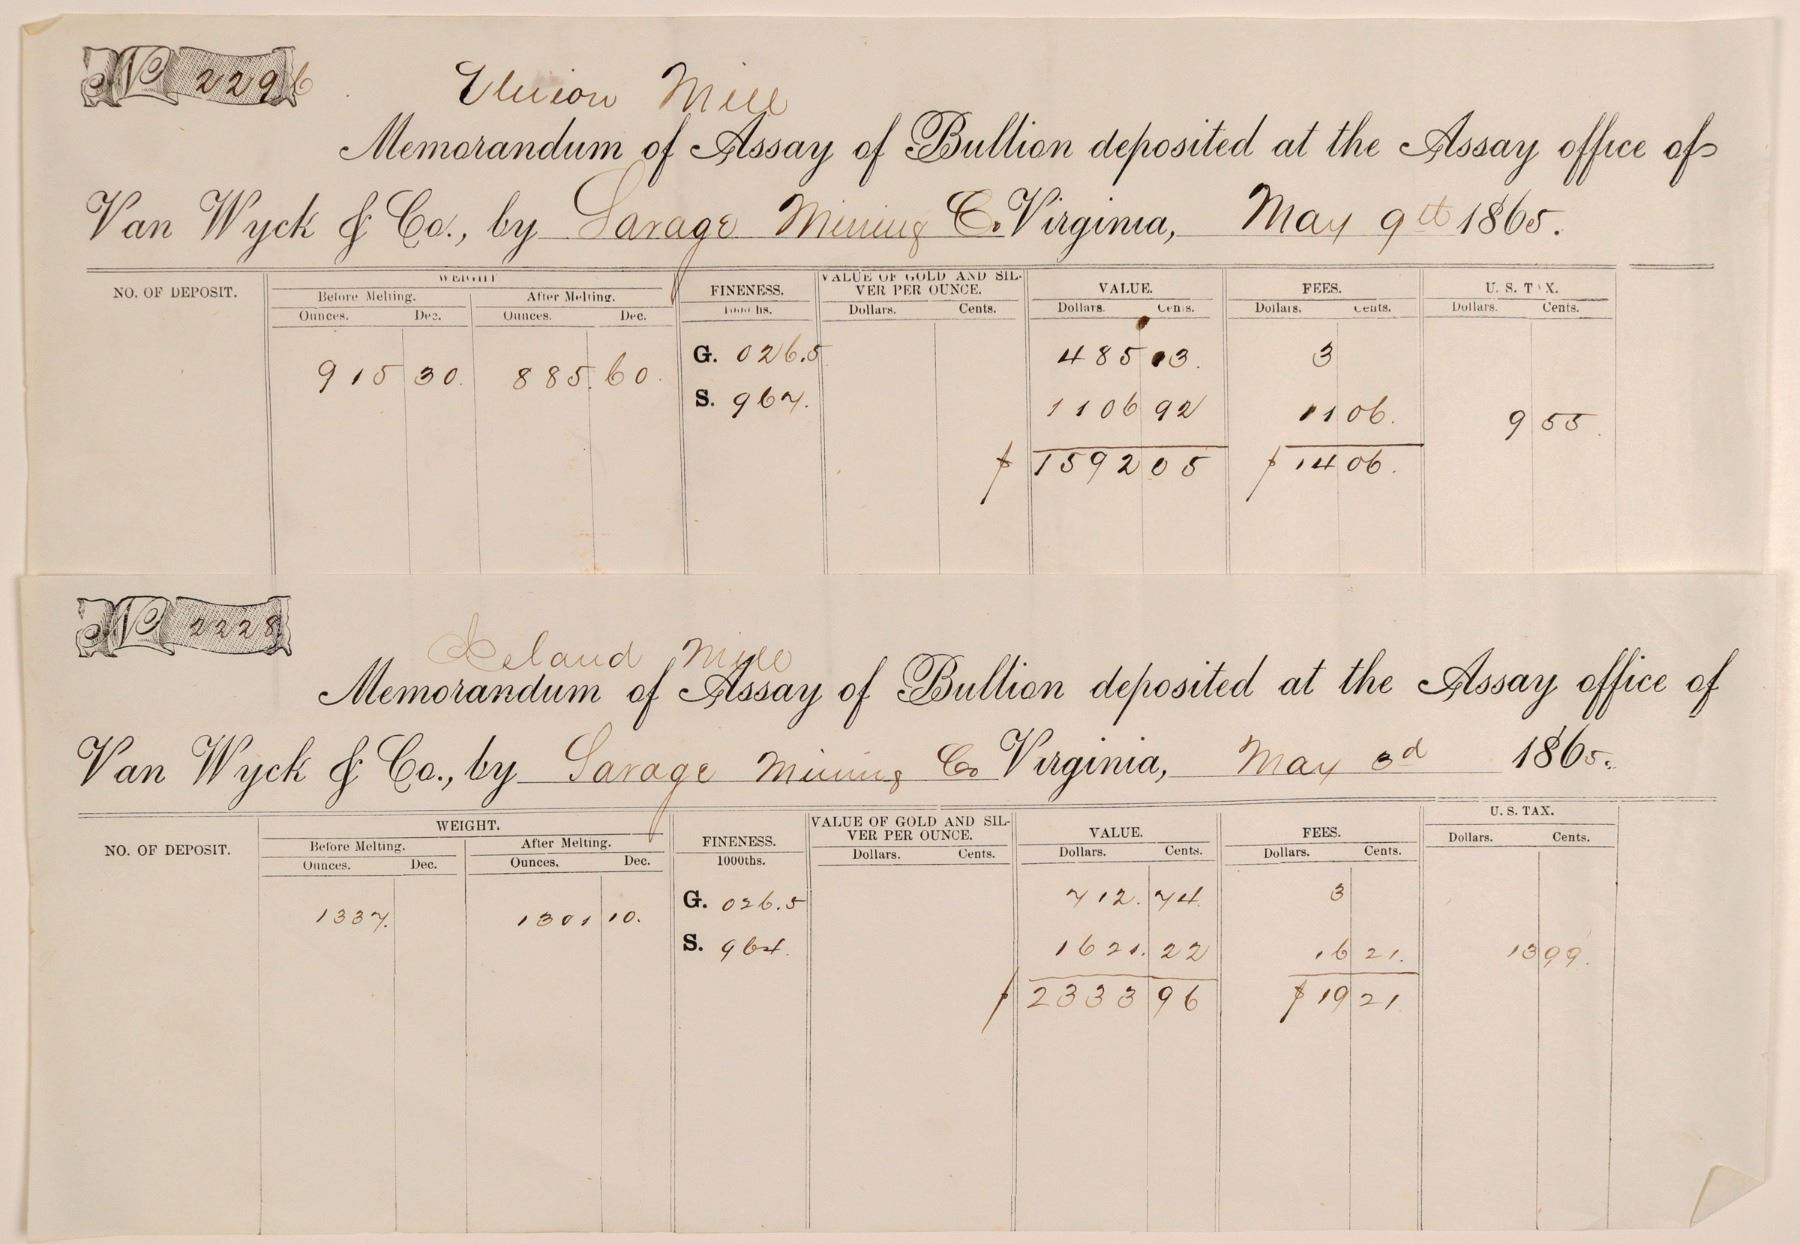 No 2296
Union Mill
Memorandum of Assay of Bullion deposited at the Assay office of
Van Wyck & Co., by Savage Mining Co. Virginia, May 9th 1865.
NO. OF DEPOSIT. WEIGHT FINENESS. VALUE OF GOLD AND SIL-VER PER OUNCE. VALUE. FEES. U. S. TAX.
Before Melting. After Melting. 1000ths. Dollars. Cents. Dollars. Cents. Dollars. Cents. Dollars. Cents.
Ounces. Dec. Ounces. Dec.
915 30. 885. 60. G. 026.5 485 13. 3
S. 967. 1106 92 11 06. 9 55.
$ 1592 05 $ 14 06.
No 2228
Memorandum of Assay of Bullion deposited at the Assay office of
Van Wyck & Co., by Savage Mining Co Virginia, May 3d 1865.
NO. OF DEPOSIT. WEIGHT. FINENESS. VALUE OF GOLD AND SIL-VER PER OUNCE. VALUE. FEES. U. S. TAX.
Before Melting. After Melting. 1000ths. Dollars. Cents. Dollars. Cents. Dollars. Cents. Dollars. Cents.
Ounces. Dec. Ounces. Dec.
1337. 1301 10. G. 026.5 712. 74 3
S. 964. 1621. 22 16 21. 13 99.
$ 2333 96 $ 19 21